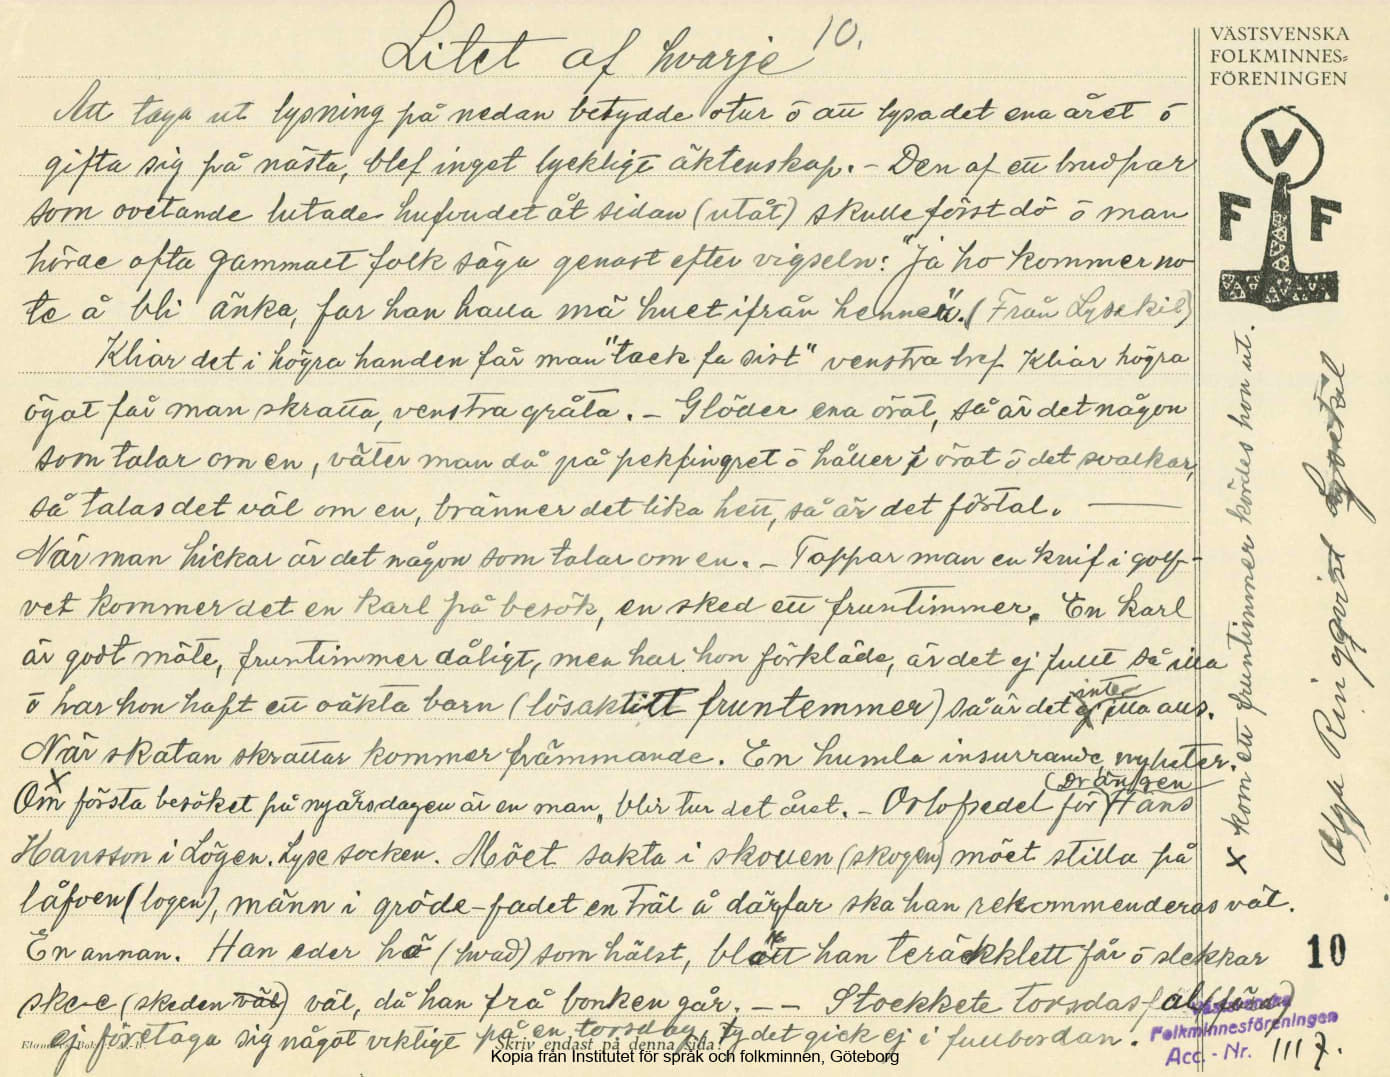 Litet af hvarje
10.
VÄSTSVENSKA
FOLKMINNES=
FÖRENINGEN
V
F F
Att taga ut lysning på nedan betydde otur ō att lysa det ena året ō
gifta sig på nästa, blef inget lyckligt äktenskap. – Den af ett brudpar
som ovetande lutade hufvudet åt sidan (utåt) skulle först dö ō man
hörde ofta gammalt folk säga genast efter vigseln: "Ja ho kommer no
te å bli änka, far han halla mä huet ifrån henne". (Från Lysekil)
Kliar det i högra handen får man "tack fa sist" venstra bref Kliar högra
ögat får man skratta, venstra gråta. – Glöder ena örat, så är det någon
som talar om en, väter man då på pekfingret ō håller i örat ō det svalkar,
så talas det väl om en, bränner det lika hett, så är det förtal. —
När man hickar är det någon som talar om en. – Tappar man en knif i golf-
vet kommer det en karl på besök, en sked ett fruntimmer. En karl
är godt möte, fruntimmer dåligt, men har hon förkläde, är det ej fullt så illa
ō har hon haft ett oäkta barn (lösaktitt fruntemmer) så är det ej inte illa aus.
När skatan skrattar kommer främmande. En humla insurrande, nyheter.
Om x första besöket på nyårsdagen är en man, blir tur det året. – Orlofsedel för (drängen) Hans
Hansson i Lögen. Lyse socken. Möet sakta i skouen (skogen) möet stilla på
låfven (logen), männ i gröde-fadet en Träl å därfar ska han rekommenderas väl.
En annan. Han eder hå (hvad) som hälst, blött han teräckklett får ō slekkar
ske-e (skeden väl) väl, då han frå bonken går. – – Stockkete torsdasfäl (färd)
ej företaga sig något viktigt på en torsdag, ty det gick ej i fullbordan.
x kom ett fruntimmer kördes hon ut.
Olga Ringqvist Lysekil
10
Skriv endast på denna sida!
Västsvenska
Folkminnesföreningen
Acc. - Nr. 1117.
Kopia från Institutet för språk och folkminnen, Göteborg